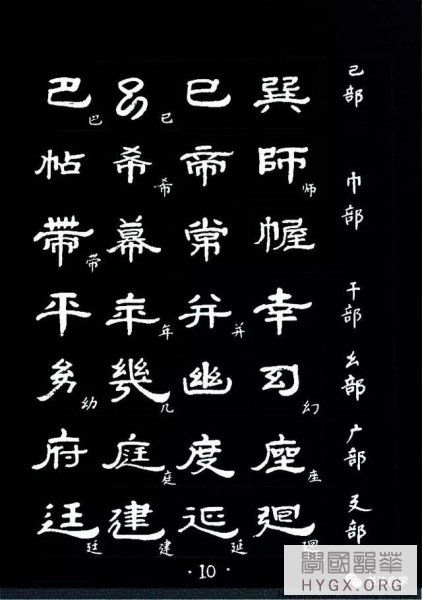 巴 巴 己 己 巳 巽 己部
帖 希 希 帝 師 师 巾部
帶 带 幕 常 幄
平 年 年 并 并 幸 干部
幼 幼 幾 几 幽 幻 幻 幺部
府 庭 庭 度 座 座 广部
廷 廷 建 建 延 延 廻 廴部
·10·
學國韻華
HYGX.ORG